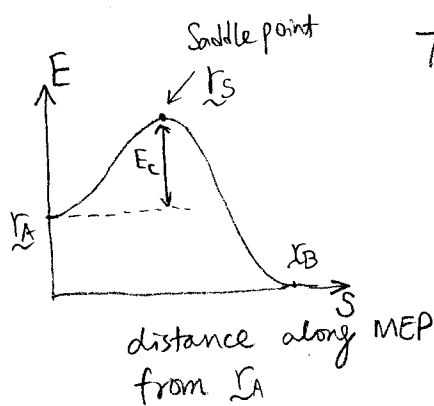 Saddle point
E
r_S
E_c
r_A
r_B
S
distance along MEP
from r_A